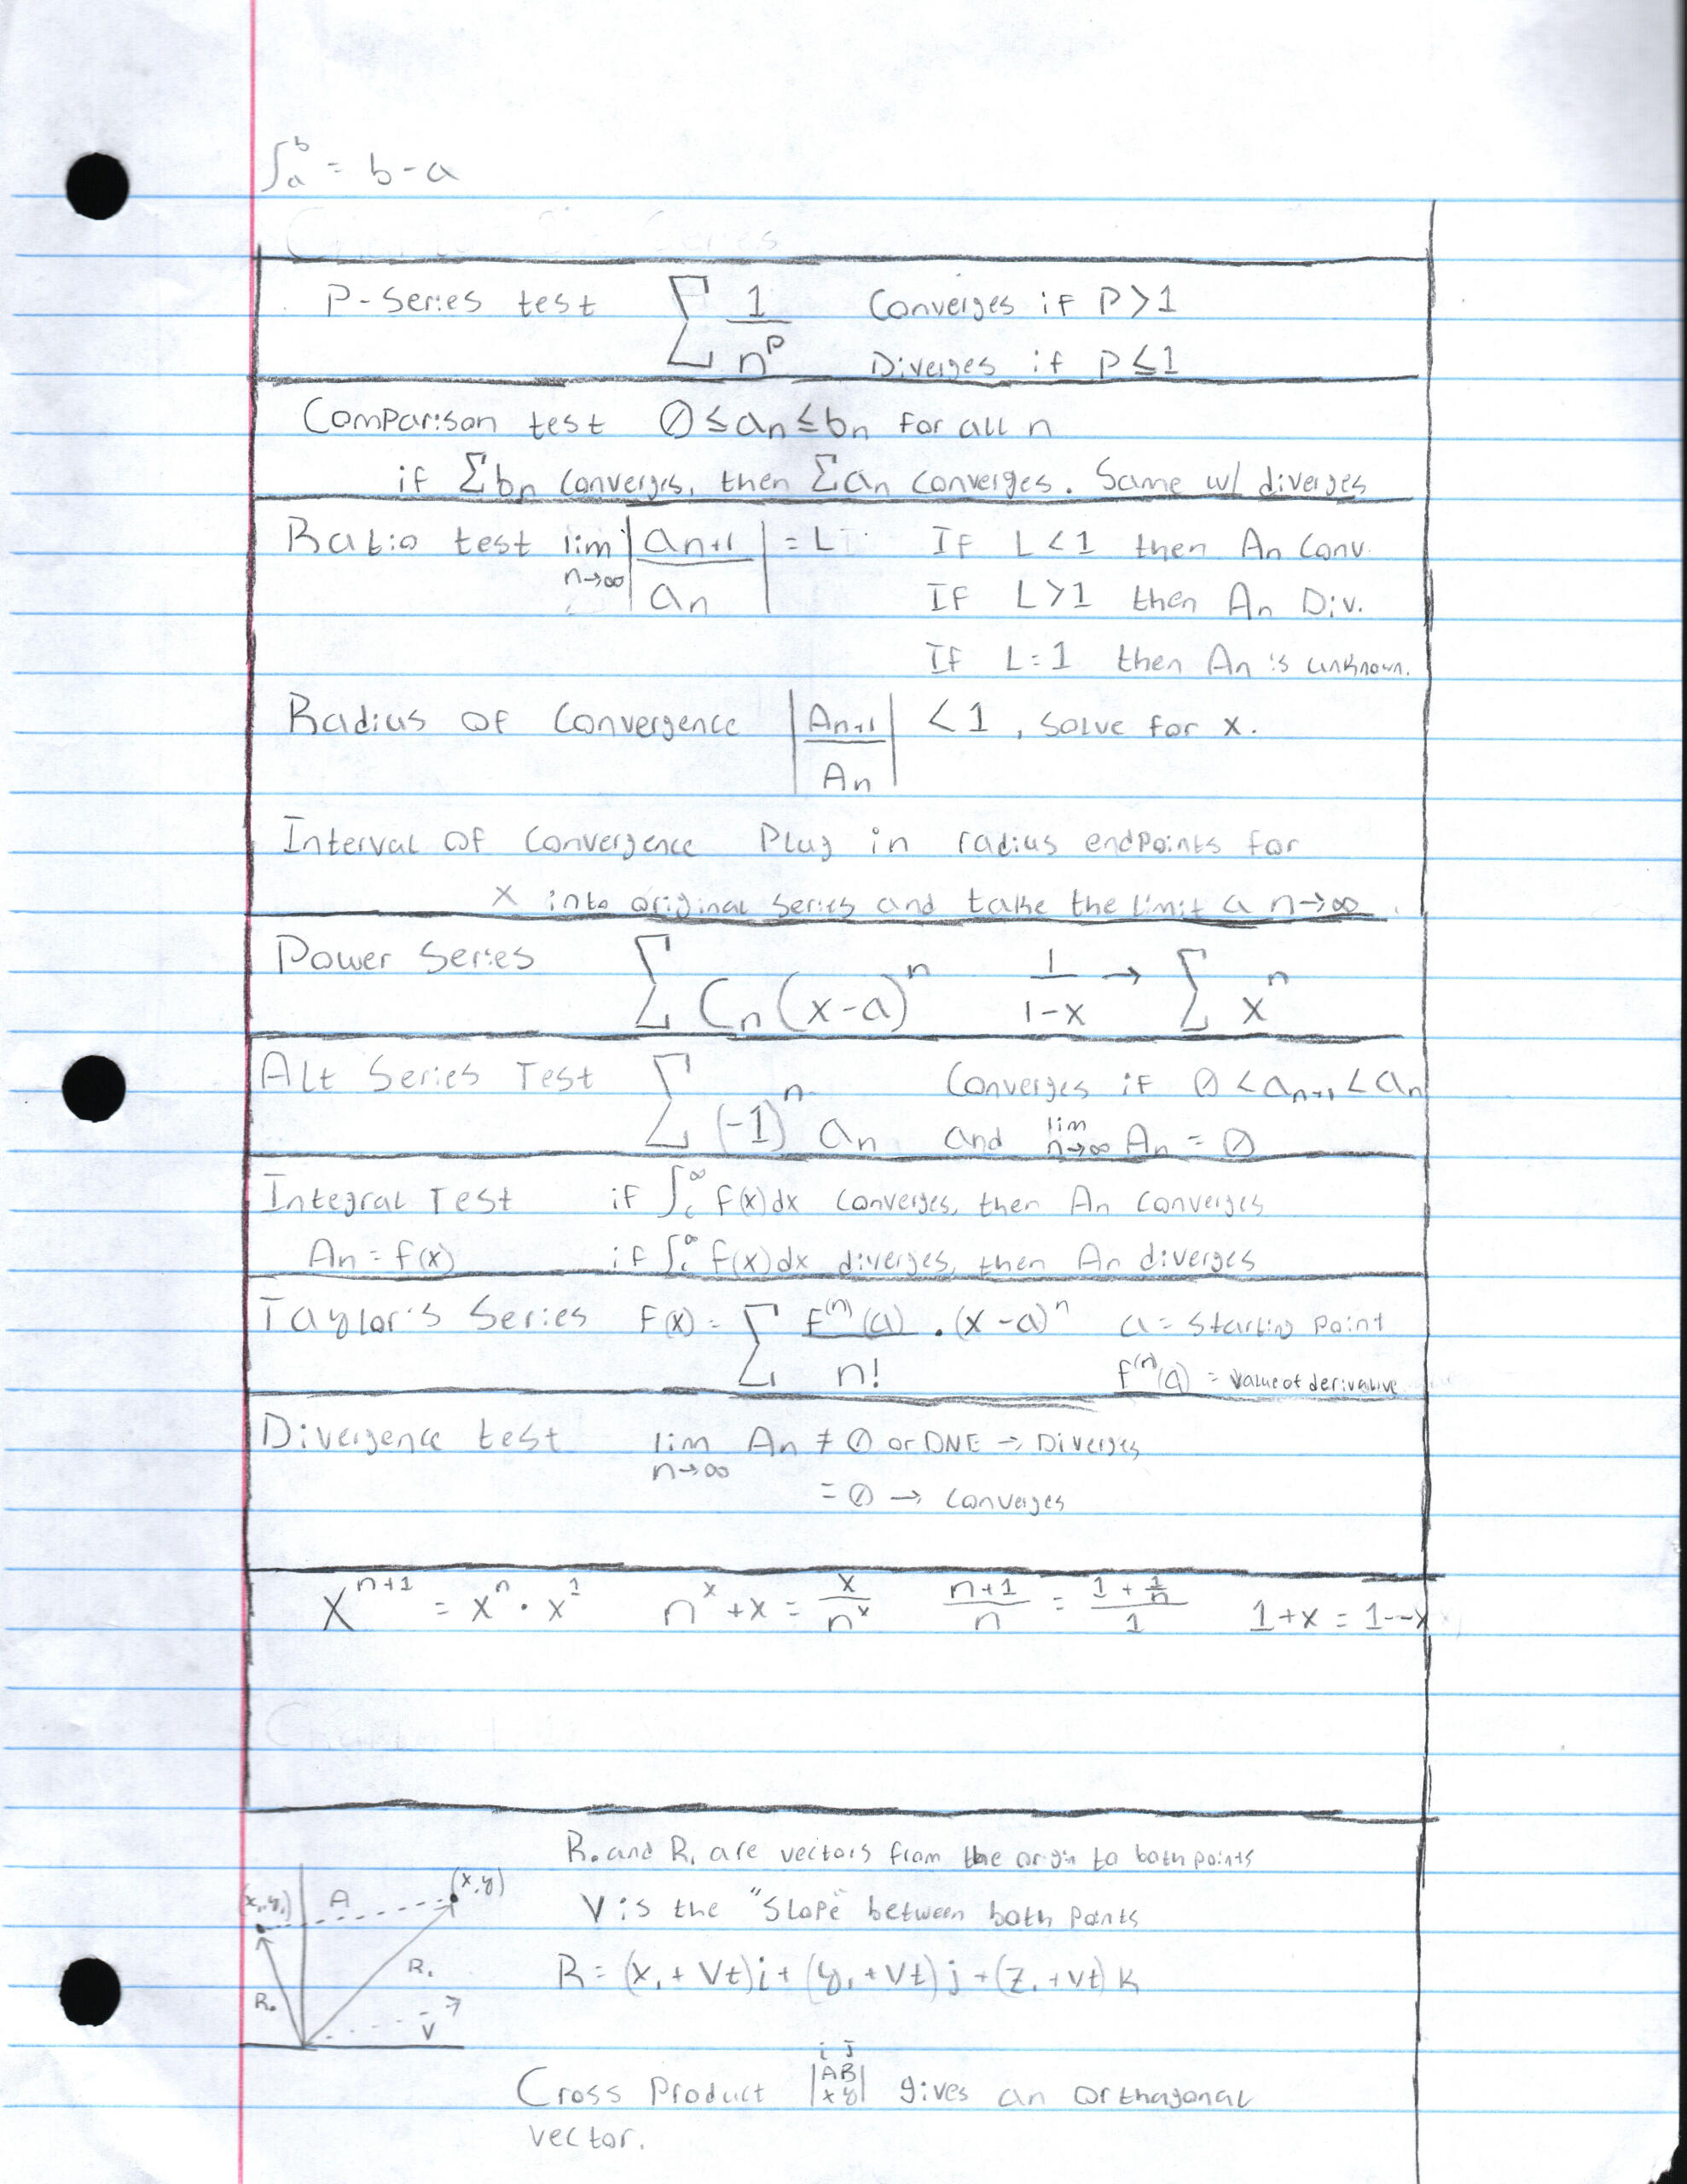 ∫ₐᵇ = b-a
P-Series test ∑ 1/n^p Converges if P>1
Diverges if P≤1
Comparison test 0≤aₙ≤bₙ for all n
if ∑bₙ converges, then ∑aₙ converges. Same w/ diverges
Ratio test lim n→∞ |aₙ₊₁/aₙ| = L If L<1 then Aₙ Conv.
If L>1 then Aₙ Div.
If L=1 then Aₙ is unknown.
Radius of Convergence |Aₙ₊₁/Aₙ| <1, solve for x.
Interval of Convergence Plug in radius endpoints for
x into original series and take the limit a n→∞.
Power Series ∑ Cₙ(x-a)ⁿ 1/(1-x) → ∑ xⁿ
Alt Series Test ∑ (-1)ⁿ aₙ Converges if 0<aₙ₊₁<aₙ
and lim n→∞ Aₙ = 0
Integral Test if ∫c^∞ f(x)dx converges, then An converges
An = f(x) if ∫c^∞ f(x)dx diverges, then An diverges
Taylor's Series F(x) = ∑ F⁽ⁿ⁾(a)/n! · (x-a)ⁿ a = starting point
f⁽ⁿ⁾(a) = value of derivative
Divergence test lim n→∞ An ≠ 0 or DNE → Diverges
= 0 → Converges
xⁿ⁺¹ = xⁿ · x¹ nˣ+x = x/nˣ (n+1)/n = (1+1/n)/1 1+x = 1--x
R₀ and R₁ are vectors from the origin to both points
V is the "slope" between both points
R = (x₁+Vt)i + (y₁+Vt)j + (z₁+Vt)k
(x₁,y₁) A (x,y)
R₀ R₁ V
i j
Cross Product |AB xy| gives an orthagonal
vector.